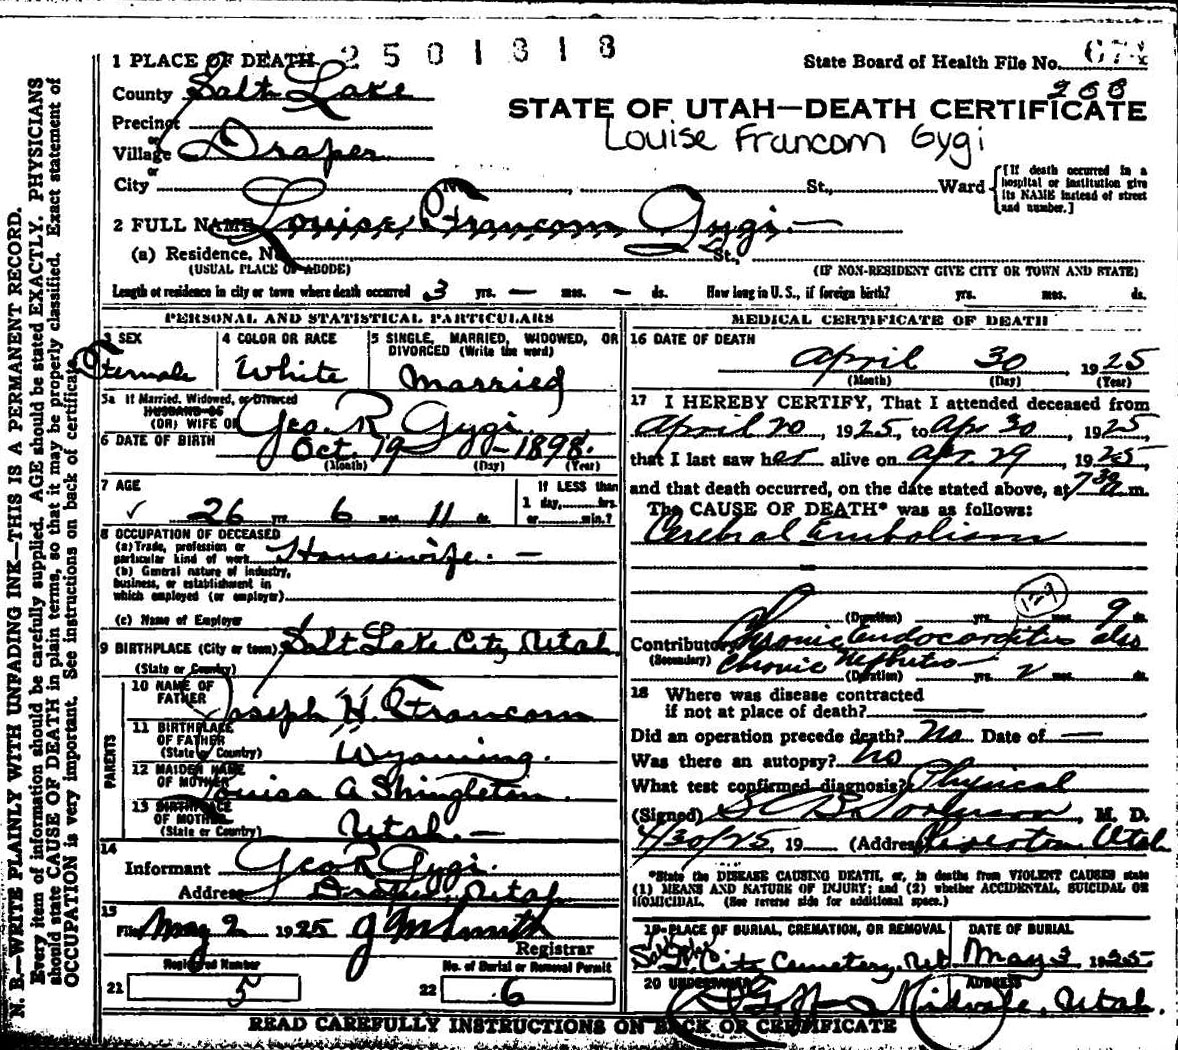 1 PLACE OF DEATH 2501818
State Board of Health File No. 674
268
County Salt Lake
STATE OF UTAH—DEATH CERTIFICATE
Precinct
or
Louise Francom Gygi
Village Draper
or
City No. , St., Ward {[If death occurred in a hospital or institution give its NAME instead of street and number.]
2 FULL NAME Louise Francom Gygi.—
(a) Residence, No. St.,
(USUAL PLACE OF ABODE) (IF NON-RESIDENT GIVE CITY OR TOWN AND STATE)
Length of residence in city or town where death occurred 3 yrs. — mos. — ds. How long in U. S., if foreign birth? yrs. mos. ds.
PERSONAL AND STATISTICAL PARTICULARS
3 SEX
Female
4 COLOR OR RACE
White
5 SINGLE, MARRIED, WIDOWED, OR DIVORCED (Write the word)
Married
5a If Married, Widowed, or Divorced
HUSBAND OF
(OR) WIFE OF Geo. R. Gygi.
6 DATE OF BIRTH Oct. 19 - 1898.
(Month) (Day) (Year)
7 AGE
26 yrs. 6 mos. 11 ds.
If LESS than
1 day, hrs.
or min.?
8 OCCUPATION OF DECEASED
(a) Trade, profession or
particular kind of work Housewife. —
(b) General nature of industry,
business, or establishment in
which employed (or employer)
(c) Name of Employer
9 BIRTHPLACE (City or town) Salt Lake City Utah.
(State or Country)
PARENTS
10 NAME OF
FATHER Joseph H. Francom
11 BIRTHPLACE
OF FATHER
(State or Country) Wyoming.
12 MAIDEN NAME
OF MOTHER Louisa A Shingleton.
13 BIRTHPLACE
OF MOTHER
(State or Country) Utah. —
14
Informant Geo R Gygi.
Address Draper, Utah
15
Filed May 2 1925 J M Smith
Registrar
Registered Number
21 5
No. of Burial or Removal Permit
22 6
MEDICAL CERTIFICATE OF DEATH
16 DATE OF DEATH
April 30, 1925
(Month) (Day) (Year)
17 I HEREBY CERTIFY, That I attended deceased from
April 20, 1925, to Apr 30, 1925,
that I last saw her alive on Apr. 29 1925
and that death occurred, on the date stated above, at 7 30 a m.
The CAUSE OF DEATH* was as follows:
Cerebral Embolism
129
(Duration) yrs. mos. 9 ds.
Contributory Chronic Endocarditis also
(Secondary) Chronic Nephritis
(Duration) yrs. 2 mos. ds.
18 Where was disease contracted
if not at place of death? —
Did an operation precede death? No Date of —
Was there an autopsy? No
What test confirmed diagnosis? Physical
(Signed) Sorenson, M. D.
4/30/25, 19 (Address) Riverton Utah
*State the DISEASE CAUSING DEATH, or, in deaths from VIOLENT CAUSES state
(1) MEANS AND NATURE OF INJURY; and (2) whether ACCIDENTAL, SUICIDAL OR
HOMICIDAL. (See reverse side for additional space.)
19 PLACE OF BURIAL, CREMATION, OR REMOVAL
City Cemetery, Ut
DATE OF BURIAL
May 3 1925
20 UNDERTAKER Goff
ADDRESS
Midvale, Utah.
READ CAREFULLY INSTRUCTIONS ON BACK OF CERTIFICATE
N. B.—WRITE PLAINLY WITH UNFADING INK—THIS IS A PERMANENT RECORD.
Every item of information should be carefully supplied. AGE should be stated EXACTLY. PHYSICIANS
should state CAUSE OF DEATH in plain terms, so that it may be properly classified. Exact statement of
OCCUPATION is very important. See instructions on back of certificate.